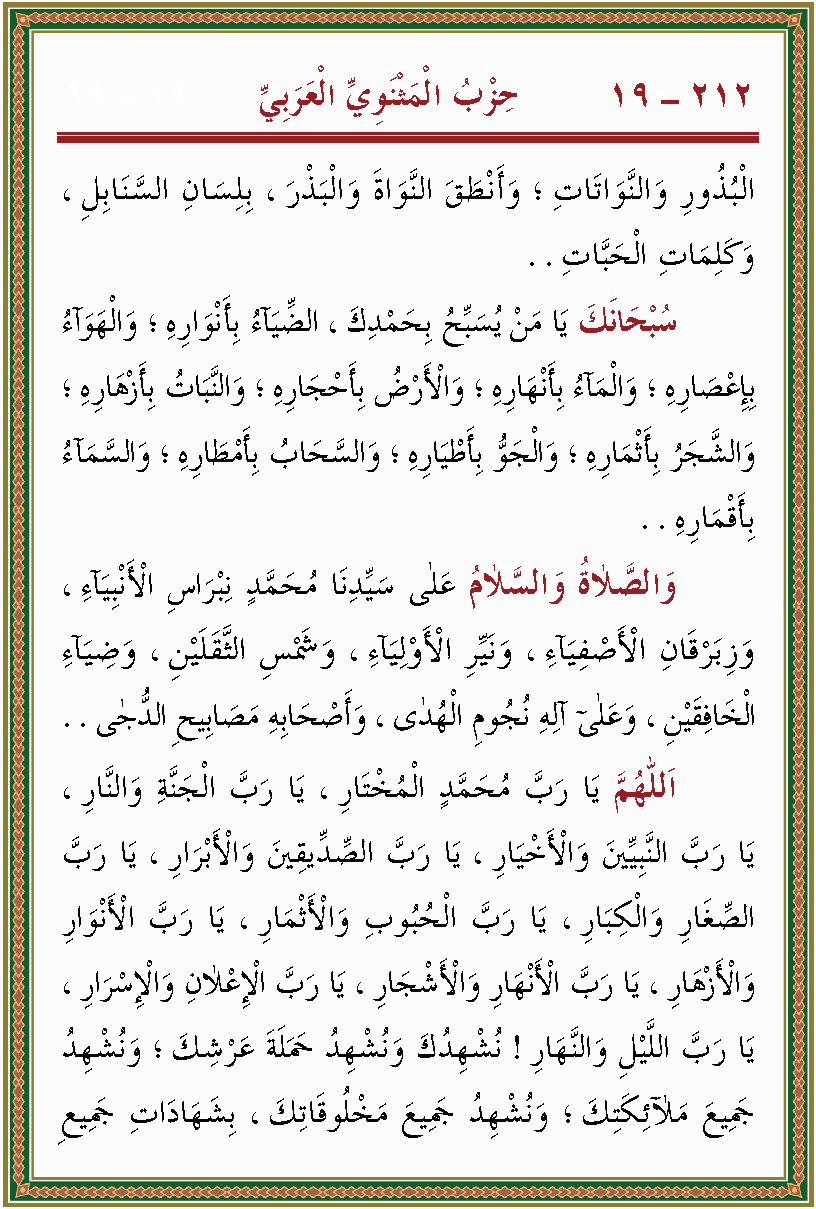 ٢١٢ ـ ١٩ حِزْبُ الْمَثْنَوِيِّ الْعَرَبِيِّ ١٩ ـ ١٩
الْبُذُورِ وَالنَّوَاتَاتِ ؛ وَأَنْطَقَ النَّوَاةَ وَالْبَذْرَ ، بِلِسَانِ السَّنَابِلِ ،
وَكَلِمَاتِ الْحَبَّاتِ . .
سُبْحَانَكَ يَا مَنْ يُسَبِّحُ بِحَمْدِكَ ، الضِّيَآءُ بِأَنْوَارِهِ ؛ وَالْهَوَآءُ
بِإِعْصَارِهِ ؛ وَالْمَآءُ بِأَنْهَارِهِ ؛ وَالْأَرْضُ بِأَحْجَارِهِ ؛ وَالنَّبَاتُ بِأَزْهَارِهِ ؛
وَالشَّجَرُ بِأَثْمَارِهِ ؛ وَالْجَوُّ بِأَطْيَارِهِ ؛ وَالسَّحَابُ بِأَمْطَارِهِ ؛ وَالسَّمَآءُ
بِأَقْمَارِهِ . .
وَالصَّلٰاةُ وَالسَّلٰامُ عَلٰى سَيِّدِنَا مُحَمَّدٍ نِبْرَاسِ الْأَنْبِيَآءِ ،
وَزِبَرْقَانِ الْأَصْفِيَآءِ ، وَنَيِّرِ الْأَوْلِيَآءِ ، وَشَمْسِ الثَّقَلَيْنِ ، وَضِيَآءِ
الْخَافِقَيْنِ ، وَعَلٰىٓ آلِهِ نُجُومِ الْهُدٰى ، وَأَصْحَابِهِ مَصَابِيحِ الدُّجٰى . .
اَللّٰهُمَّ يَا رَبَّ مُحَمَّدٍ الْمُخْتَارِ ، يَا رَبَّ الْجَنَّةِ وَالنَّارِ ،
يَا رَبَّ النَّبِيِّينَ وَالْأَخْيَارِ ، يَا رَبَّ الصِّدِّيقِينَ وَالْأَبْرَارِ ، يَا رَبَّ
الصِّغَارِ وَالْكِبَارِ ، يَا رَبَّ الْحُبُوبِ وَالْأَثْمَارِ ، يَا رَبَّ الْأَنْوَارِ
وَالْأَزْهَارِ ، يَا رَبَّ الْأَنْهَارِ وَالْأَشْجَارِ ، يَا رَبَّ الْإِعْلٰانِ وَالْإِسْرَارِ ،
يَا رَبَّ اللَّيْلِ وَالنَّهَارِ ! نُشْهِدُكَ وَنُشْهِدُ حَمَلَةَ عَرْشِكَ ؛ وَنُشْهِدُ
جَمِيعَ مَلٰآئِكَتِكَ ؛ وَنُشْهِدُ جَمِيعَ مَخْلُوقَاتِكَ ، بِشَهَادَاتِ جَمِيعِ